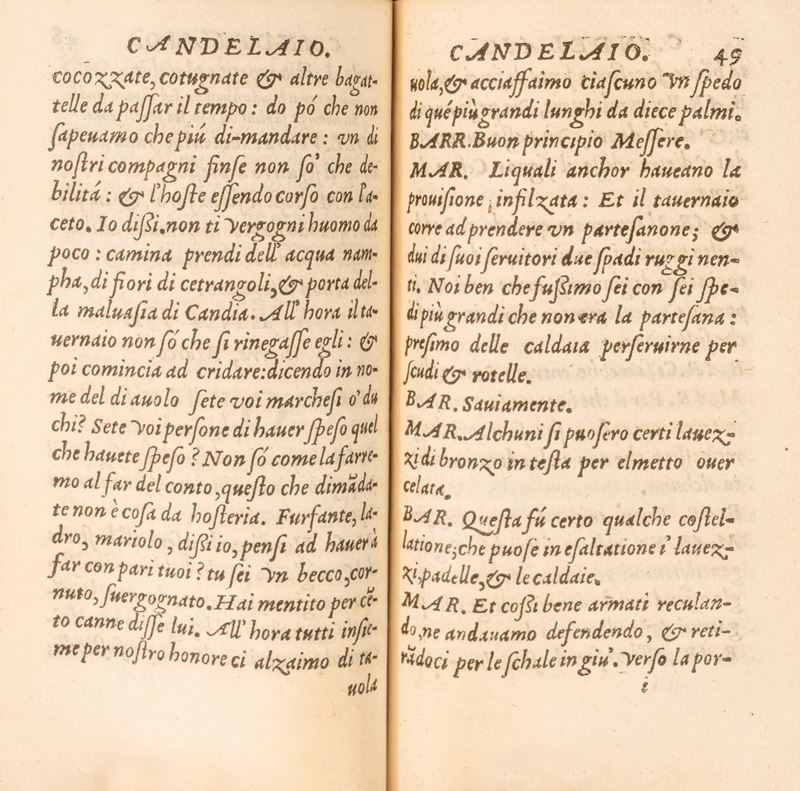 CANDELAIO.
cocozzate, cotugnate & altre bagat-
telle da paſſar il tempo: do pó che non
ſapeuamo che piú di-mandare: vn di
noſtri compagni finſe non ſo' che de-
bilitá: & l'hoſte eſſendo corſo con l'a-
ceto. Io diſſi. non ti vergogni huomo da
poco: camina prendi dell' acqua nam-
pha, di fiori di cetrangoli, & porta del-
la maluaſia di Candia. All' hora il ta-
uernaio non ſó che ſi rinegaſſe egli: &
poi comincia ad cridare: dicendo in no-
me del di auolo ſete voi marcheſi o' du
chi? Sete voi perſone di hauer ſpeſo quel
che hauete ſpeſo? Non ſó come la farre-
mo al far del conto, queſto che dimãda-
te non è coſa da hoſteria. Furfante, la-
dro, mariolo, diſſi io, penſi ad hauer à
far con pari tuoi? tu ſei vn becco, cor-
nuto, ſuergognato. Hai mentito per cẽ-
to canne diſſe lui. All' hora tutti inſie-
me per noſtro honore ci alzaimo di ta-
uola
CANDELAIO. 49
uola, & acciaffaimo ciaſcuno vn ſpedo
di qué più grandi lunghi da diece palmi.
BARR. Buon principio Meſſere.
MAR. Li quali anchor haueano la
prouiſione infilzata: Et il tauernaio
corre ad prendere vn parteſanone; &
dui di ſuoi ſeruitori due ſpadi ruggi nen-
ti. Noi ben che fuſſimo ſei con ſei ſpe-
di più grandi che non era la parteſana:
preſimo delle caldaia perſeruirne per
ſcudi & rotelle.
BAR. Sauiamente.
MAR. Alchuni ſi puoſero certi lauez-
zi di bronzo in teſta per elmetto ouer
celata.
BAR. Queſta fú certo qualche coſtel-
latione; che puoſe in eſaltatione i' lauez-
zi, padelle, & le caldaie.
MAR. Et coſſi bene armati reculan-
do, ne andauamo defendendo, & reti-
rãdoci per le ſchale in giu'. verſo la por-
i